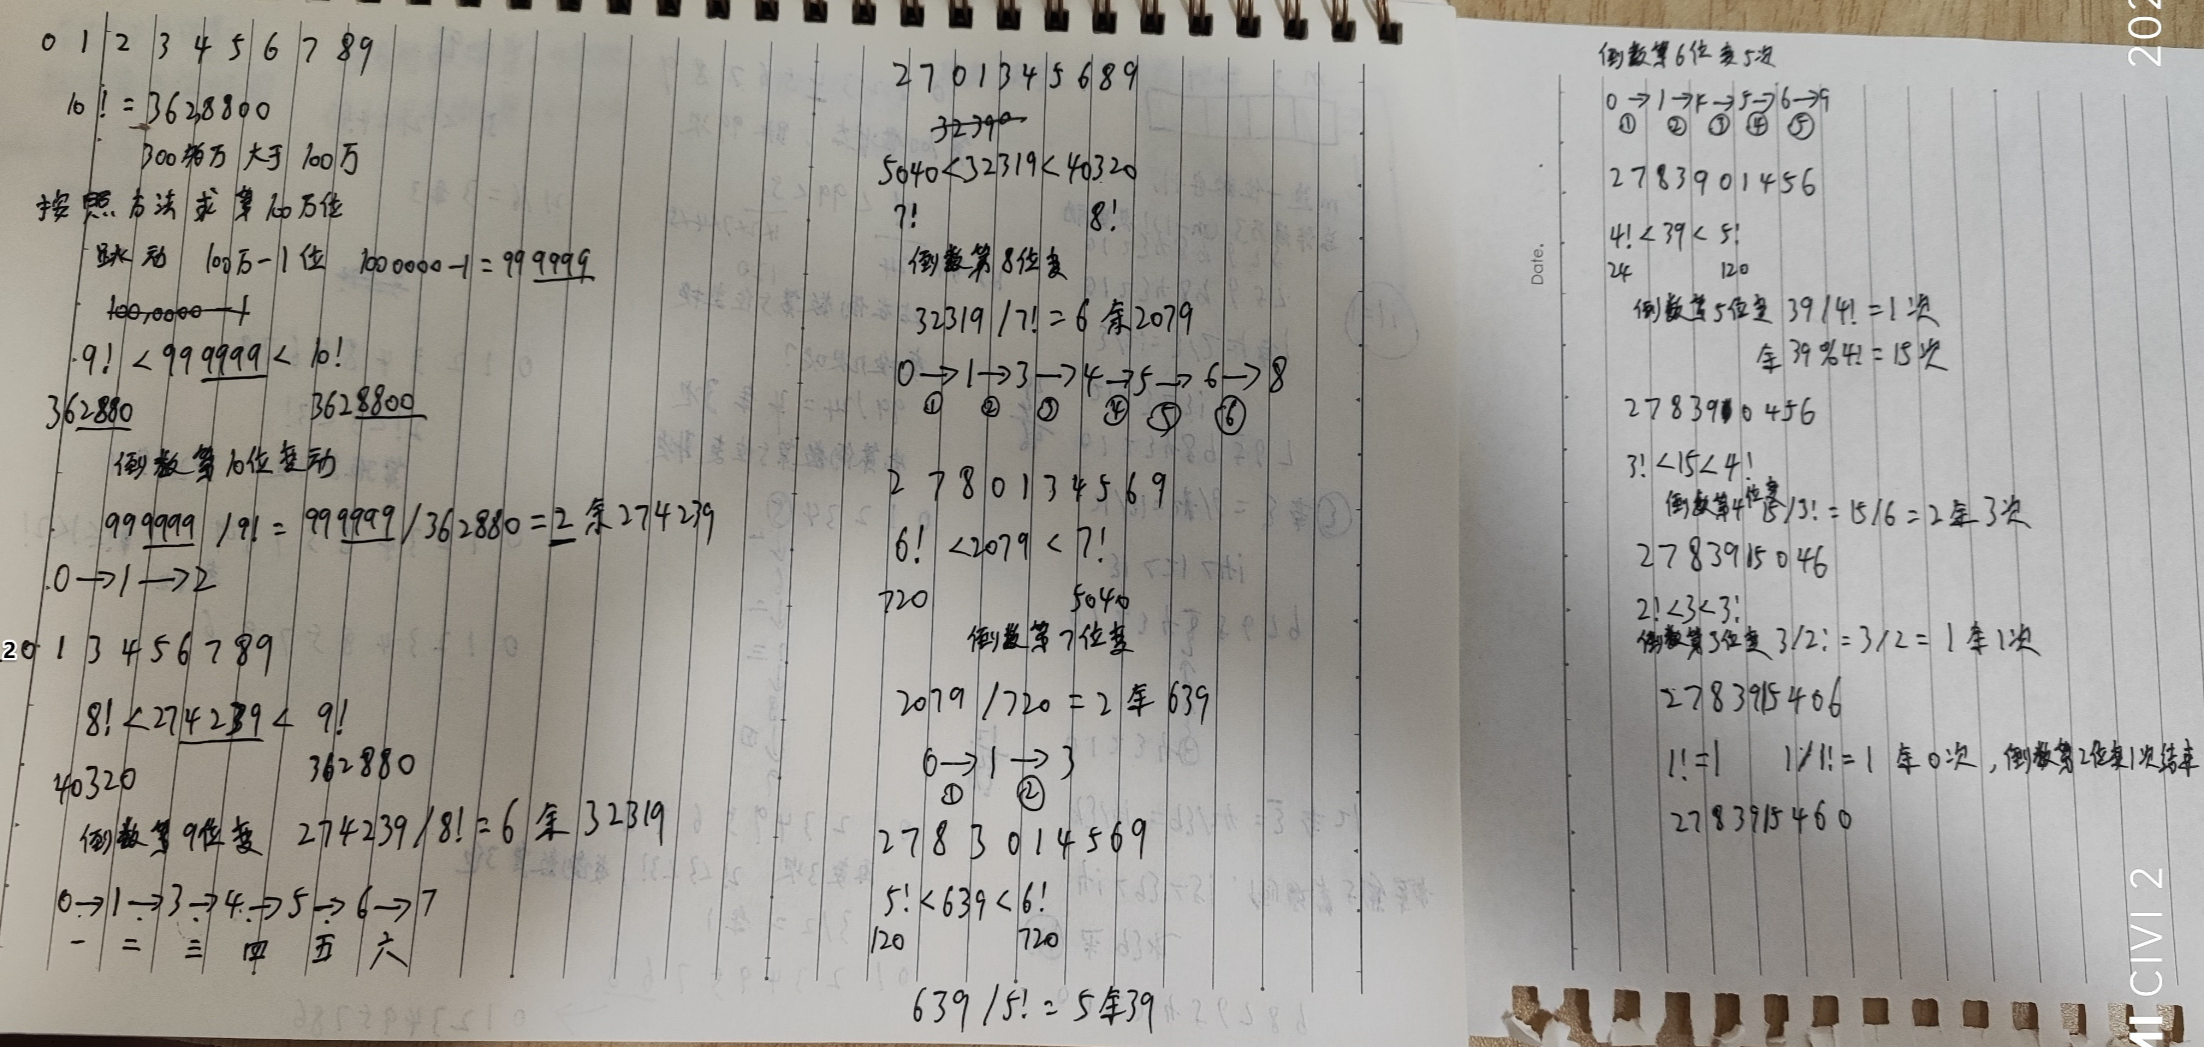 0 1 2 3 4 5 6 7 8 9
10! = 3628800
300多万 大于 100万
按照方法求第100万位
跳动 100万-1位 1000000-1=999999
100,0000-1
9! < 999999 < 10!
362880 3628800
倒数第10位变动
999999 / 9! = 999999 / 362880 = 2 余 274239
0→1→2
2 0 1 3 4 5 6 7 8 9
8! < 274239 < 9!
40320 362880
倒数第9位变 274239/8! = 6 余 32319
0→1→3→4→5→6→7
一 二 三 四 五 六
2 7 0 1 3 4 5 6 8 9
5040<32319<40320
7! 8!
倒数第8位变
32319/7! = 6 余2079
0→1→3→4→5→6→8
① ② ③ ④ ⑤ ⑥
2 7 8 0 1 3 4 5 6 9
6! <2079 < 7!
720 5040
倒数第7位变
2079/720 = 2 余 639
0→1→3
① ②
2 7 8 3 0 1 4 5 6 9
5! < 639 < 6!
120 720
639/5! = 5余39
倒数第6位变5次
0→1→4→5→6→9
① ② ③ ④ ⑤
2 7 8 3 9 0 1 4 5 6
4! < 39 < 5!
24 120
倒数第5位变 39/4! = 1次
余 39%4! = 15次
2 7 8 3 9 1 0 4 5 6
3! <15< 4!
倒数第4位变 15/3! = 15/6 = 2余3次
2 7 8 3 9 1 5 0 4 6
2! <3< 3!
倒数第3位变 3/2! = 3/2 = 1余1次
2 7 8 3 9 1 5 4 0 6
1! = 1 1/1! = 1 余0次,倒数第2位变1次结束
2 7 8 3 9 1 5 4 6 0
Date.
202
MI CIVI 2